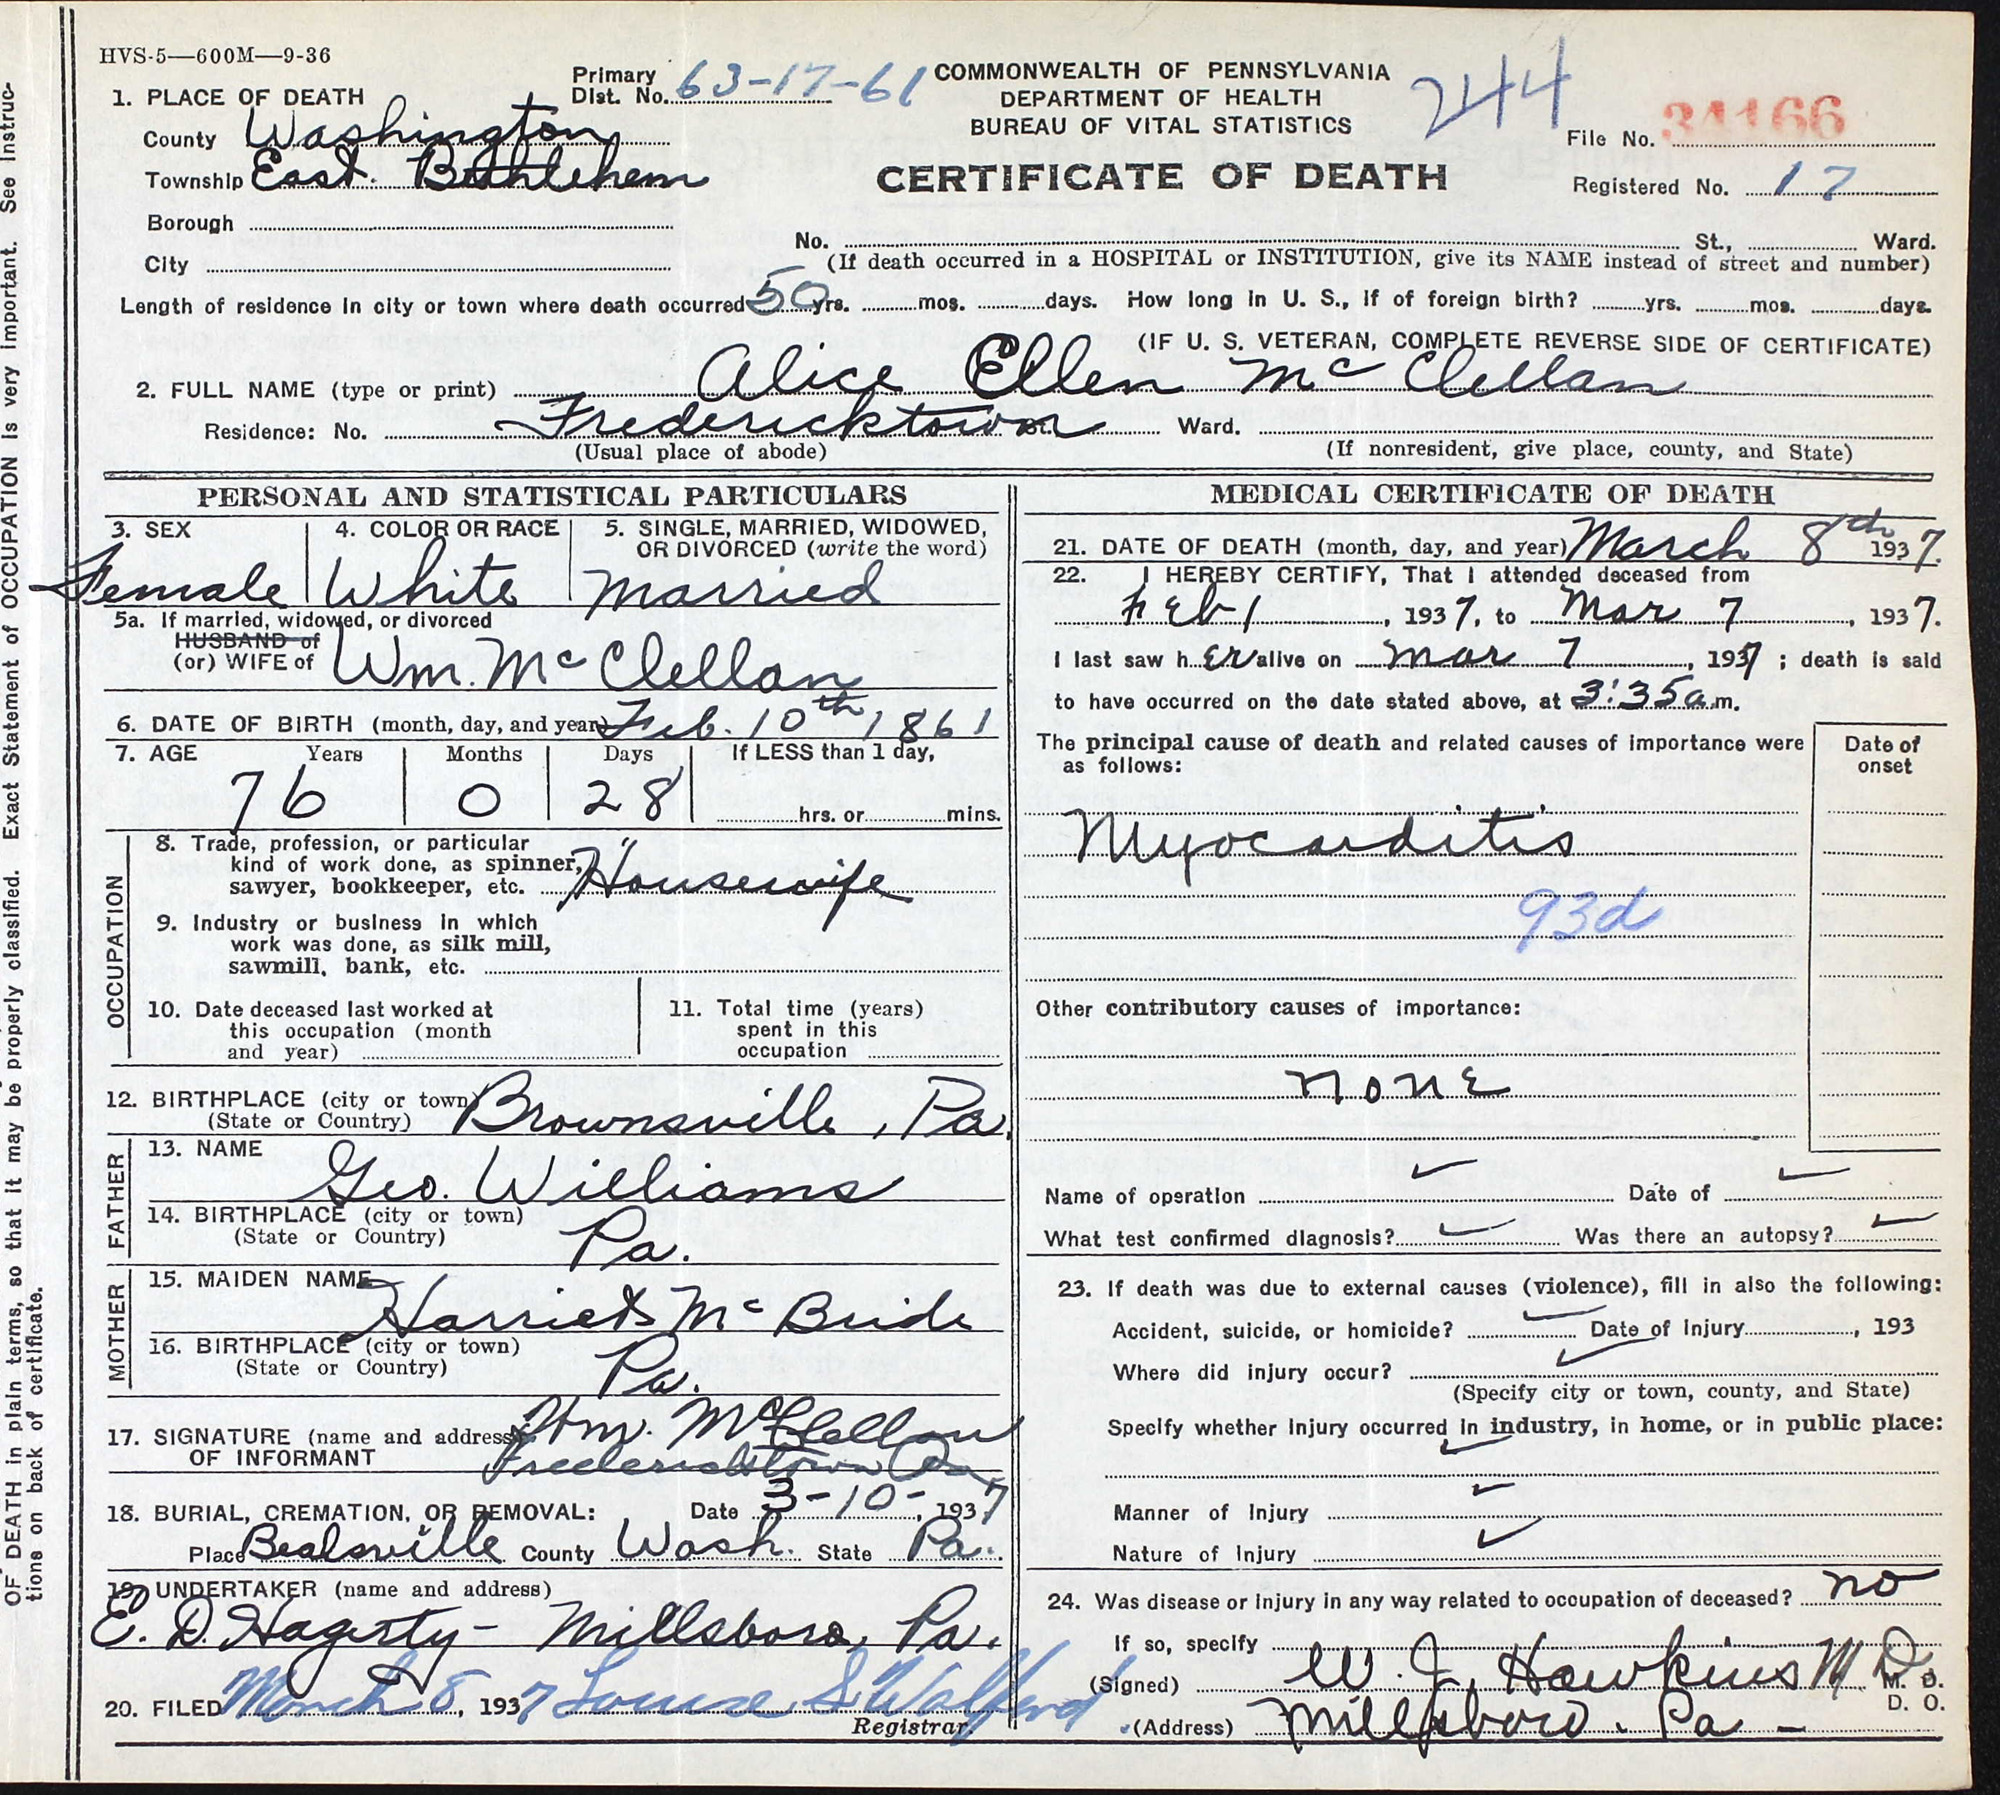 HVS-5—600M—9-36
1. PLACE OF DEATH
Primary Dist. No. 63-17-61
COMMONWEALTH OF PENNSYLVANIA
DEPARTMENT OF HEALTH
BUREAU OF VITAL STATISTICS
244
File No. 34166
CERTIFICATE OF DEATH
Registered No. 17
County Washington
Township East. Bethlehem
Borough
City
No. St., Ward.
(If death occurred in a HOSPITAL or INSTITUTION, give its NAME instead of street and number)
Length of residence in city or town where death occurred 50 yrs. mos. days. How long in U. S., if of foreign birth? yrs. mos. days.
(IF U. S. VETERAN, COMPLETE REVERSE SIDE OF CERTIFICATE)
2. FULL NAME (type or print) Alice Ellen McClellan
Residence: No. Fredericktown St. Ward.
(Usual place of abode) (If nonresident, give place, county, and State)
PERSONAL AND STATISTICAL PARTICULARS
3. SEX 4. COLOR OR RACE 5. SINGLE, MARRIED, WIDOWED,
OR DIVORCED (write the word)
Female White Married
5a. If married, widowed, or divorced
HUSBAND of
(or) WIFE of Wm. McClellan
6. DATE OF BIRTH (month, day, and year) Feb. 10th, 1861
7. AGE Years Months Days If LESS than 1 day,
76 0 28 hrs. or mins.
OCCUPATION
8. Trade, profession, or particular
kind of work done, as spinner,
sawyer, bookkeeper, etc. Housewife
9. Industry or business in which
work was done, as silk mill,
sawmill, bank, etc.
10. Date deceased last worked at
this occupation (month
and year)
11. Total time (years)
spent in this
occupation
12. BIRTHPLACE (city or town) Brownsville, Pa.
(State or Country)
FATHER
13. NAME Geo. Williams
14. BIRTHPLACE (city or town)
(State or Country) Pa.
MOTHER
15. MAIDEN NAME Harriet McBride
16. BIRTHPLACE (city or town)
(State or Country) Pa.
17. SIGNATURE (name and address) Wm. McClellan
OF INFORMANT Fredericktown Pa
18. BURIAL, CREMATION, OR REMOVAL: Date 3-10-, 1937
Place Bealsville County Wash. State Pa.
19. UNDERTAKER (name and address)
E. D. Hagerty - Millsboro, Pa.
20. FILED March 8, 1937 Louise S. Walford
Registrar.
MEDICAL CERTIFICATE OF DEATH
21. DATE OF DEATH (month, day, and year) March 8th 1937.
22. I HEREBY CERTIFY, That I attended deceased from
Feb 1, 1937, to Mar 7, 1937.
I last saw her alive on Mar 7, 1937; death is said
to have occurred on the date stated above, at 3:35 a.m.
The principal cause of death and related causes of importance were
as follows:
Date of
onset
Myocarditis
93d
Other contributory causes of importance:
none
Name of operation Date of
What test confirmed diagnosis? Was there an autopsy?
23. If death was due to external causes (violence), fill in also the following:
Accident, suicide, or homicide? Date of injury , 193
Where did injury occur?
(Specify city or town, county, and State)
Specify whether injury occurred in industry, in home, or in public place:
Manner of injury
Nature of injury
24. Was disease or injury in any way related to occupation of deceased? no
If so, specify
(Signed) W. J. Hawkins M D M. D.
D. O.
(Address) Millsboro. Pa -
OF DEATH in plain terms, so that it may be properly classified. Exact Statement of OCCUPATION is very important. See Instruc-
tions on back of certificate.